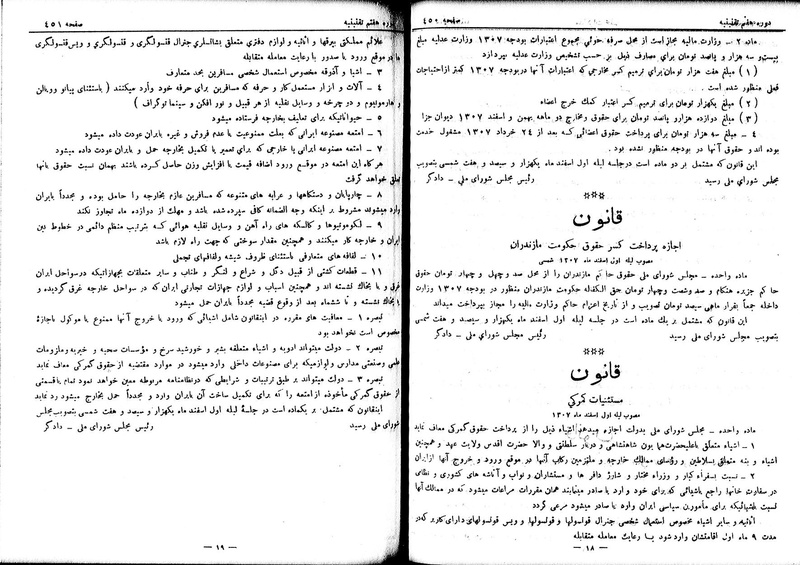 دوره هفتم تقنینیه
صفحه ٤٥٠
ماده ٢ ـ وزارت مالیه مجاز است از محل صرفه جوئی مجموع اعتبارات بودجه ١٣٠٧ وزارت عدلیه مبلغ
بیست و سه هزار و پانصد تومان برای مصارف ذیل بر حسب تشخیص وزارت عدلیه بپردازد
( ١ ) مبلغ هفت هزار تومان برای ترمیم کسر مخارجی که اعتبارات آنها در بودجه ١٣٠٧ کمتر از احتیاجات
فعلی منظور شده است .
( ٢ ) مبلغ یکهزار تومان برای ترمیم کسر اعتبار کمک خرج اعضاء
( ٣ ) مبلغ دوازده هزار و پانصد تومان برای حقوق و مخارج دو ماهه بهمن و اسفند ١٣٠٧ دیوان جزا
٤ ـ مبلغ سه هزار تومان برای پرداخت حقوق اعضائی که بعد از ٢٤ خرداد ١٣٠٧ مشغول خدمت
بوده اند و حقوق آنها در بودجه منظور نشده بود .
این قانون که مشتمل بر دو ماده است در جلسه لیله اول اسفند ماه یکهزار و سیصد و هفت شمسی بتصویب
مجلس شورای ملی رسید
رئیس مجلس شورای ملی ـ دادگر
***
قانون
اجازه پرداخت کسر حقوق حکومت مازندران
مصوب لیله اول اسفند ماه ١٣٠٧ شمسی
ماده واحده ـ مجلس شورای ملی حقوق حاکم مازندران را از محل صد و چهل و چهار تومان حقوق
حاکم جزیره هنگام و صد و شصت و چهار تومان حق الکفاله حکومت مازندران منظور در بودجه ١٣٠٧ وزارت
داخله جمعاً بقرار ماهی سیصد تومان تصویب و از تاریخ اعزام حاکم وزارت مالیه را مجاز بپرداخت میداند
این قانون که مشتمل بر یک ماده است در جلسه لیله اول اسفند ماه یکهزار و سیصد و هفت شمسی
بتصویب مجلس شورای ملی رسید
رئیس مجلس شورای ملی ـ دادگر
***
قانون
مستثنیات گمرکی
مصوب لیله اول اسفند ماه ١٣٠٧
ماده واحده ـ مجلس شورای ملی بدولت اجازه میدهد اشیاء ذیل را از پرداخت حقوق گمرکی معاف نماید
١ ـ اشیاء متعلق باعلیحضرت همایون شاهنشاهی و دربار سلطنتی و والا حضرت اقدس ولایت عهد و همچنین
اشیاء و بنه متعلق بسلاطین و رؤسای ممالک خارجه و ملتزمین رکاب آنها در موقع ورود و خروج آنها از ایران
٢ ـ نسبت بسفراء کبار و وزراء مختار و شارژ دافر ها و مستشاران و نواب و آتاشه های کشوری و نظامی
در سفارت خانها راجع باشیائی که برای خود وارد یا صادر مینمایند همان مقررات مراعات میشود که در ممالک آنها
نسبت باشیائیکه برای مأمورین سیاسی ایران وارد یا صادر میشود مرعی گردد
اثاثیه و سایر اشیاء مخصوص استعمال شخصی جنرال قونسولها و قونسولها و ویس قونسولهای دارای کاریر که در
مدت ٩ ماه اول اقامتشان وارد شود با رعایت معامله متقابله
ـ ١٨ ـ
دوره هفتم تقنینیه
صفحه ٤٥١
علائم مملکتی بیرقها و اثاثیه و لوازم دفتری متعلق بشانسلری جنرال قنسولگری و قنسولگری و ویس قنسولگری
ها در موقع ورود یا صدور با رعایت معامله متقابله
٣ ـ اشیا و آذوقه مخصوص استعمال شخصی مسافرین بحد متعارف
٤ ـ آلات و ابزار مستعمل کار و حرفه که مسافرین برای حرفه خود وارد میکنند ( باستثنای پیانو و ویالن
و هارمونیوم و دو چرخه و وسایل نقلیه از هر قبیل و نور افکن و سینما توگراف )
٥ ـ حیواناتیکه برای تعلیف بخارجه فرستاده میشود
٦ ـ امتعه مصنوعه ایرانی که بعلت ممنوعیت یا عدم فروش و غیره بایران عودت داده میشود
٧ ـ امتعه مصنوعه ایرانی یا خارجی که برای تعمیر یا تکمیل بخارجه حمل و بایران عودت داده میشود
هرگاه این امتعه در موقع ورود اضافه قیمت یا افزایش وزن حاصل کرده باشند بهمان نسبت حقوق بآنها
تعلق خواهد گرفت
٨ ـ چارپایان و دستگاهها و عرابه های متنوعه که مسافرین عازم بخارجه را حامل بوده و مجدداً بایران
وارد میشوند مشروط بر اینکه وجه الضمانه کافی سپرده شده باشد و مهلت از دوازده ماه تجاوز نکند
٩ ـ لکوموتیوها و کالسکه های راه آهن و وسایل نقلیه هوائی که بترتیب منظم دائمی در خطوط بین
ایران و خارجه کار میکنند و همچنین مقدار سوختی که جهت راه لازم باشد
١٠ ـ لفافه های متعارفی باستثنای ظروف شیشه و لفافهای تجملی
١١ ـ قطعات کشتی از قبیل دکل و شراع و لنگر و طناب و سایر متعلقات بجهازاتیکه در سواحل ایران
غرق و یا بخاک نشسته و همچنین اسباب و لوازم جهازات تجارتی ایران که در سواحل خارجه غرق گردیده و
یا بخاک نشسته و تا ششماه بعد از وقوع قضیه مجدداً بایران حمل میشود
تبصره ١ ـ معافیت های مقرره در اینقانون شامل اشیائی که ورود یا خروج آنها ممنوع یا موکول باجازه
مخصوص است نخواهد بود
تبصره ٢ ـ دولت میتواند ادویه و اشیاء متعلقه بشیر و خورشید سرخ و مؤسسات صحیه و خیریه و ملزومات
علمی و صنعتی مدارس و لوازمیکه برای مصنوعات داخلی وارد میشود در موارد مقتضیه از حقوق گمرکی معاف نماید
تبصره ٣ ـ دولت میتواند بر طبق ترتیبات و شرایطی که در نظامنامه مربوطه معین خواهد نمود تمام یا قسمتی
از حقوق گمرکی مأخوذه از امتعه را که برای تکمیل ساخت آن بایران وارد و مجدداً حمل بخارج میشود رد نماید
اینقانون که مشتمل بر یکماده است در جلسه لیله اول اسفند ماه یکهزار و سیصد و هفت شمسی بتصویب مجلس
شورای ملی رسید
رئیس مجلس شورای ملی ـ دادگر
ـ ١٩ ـ